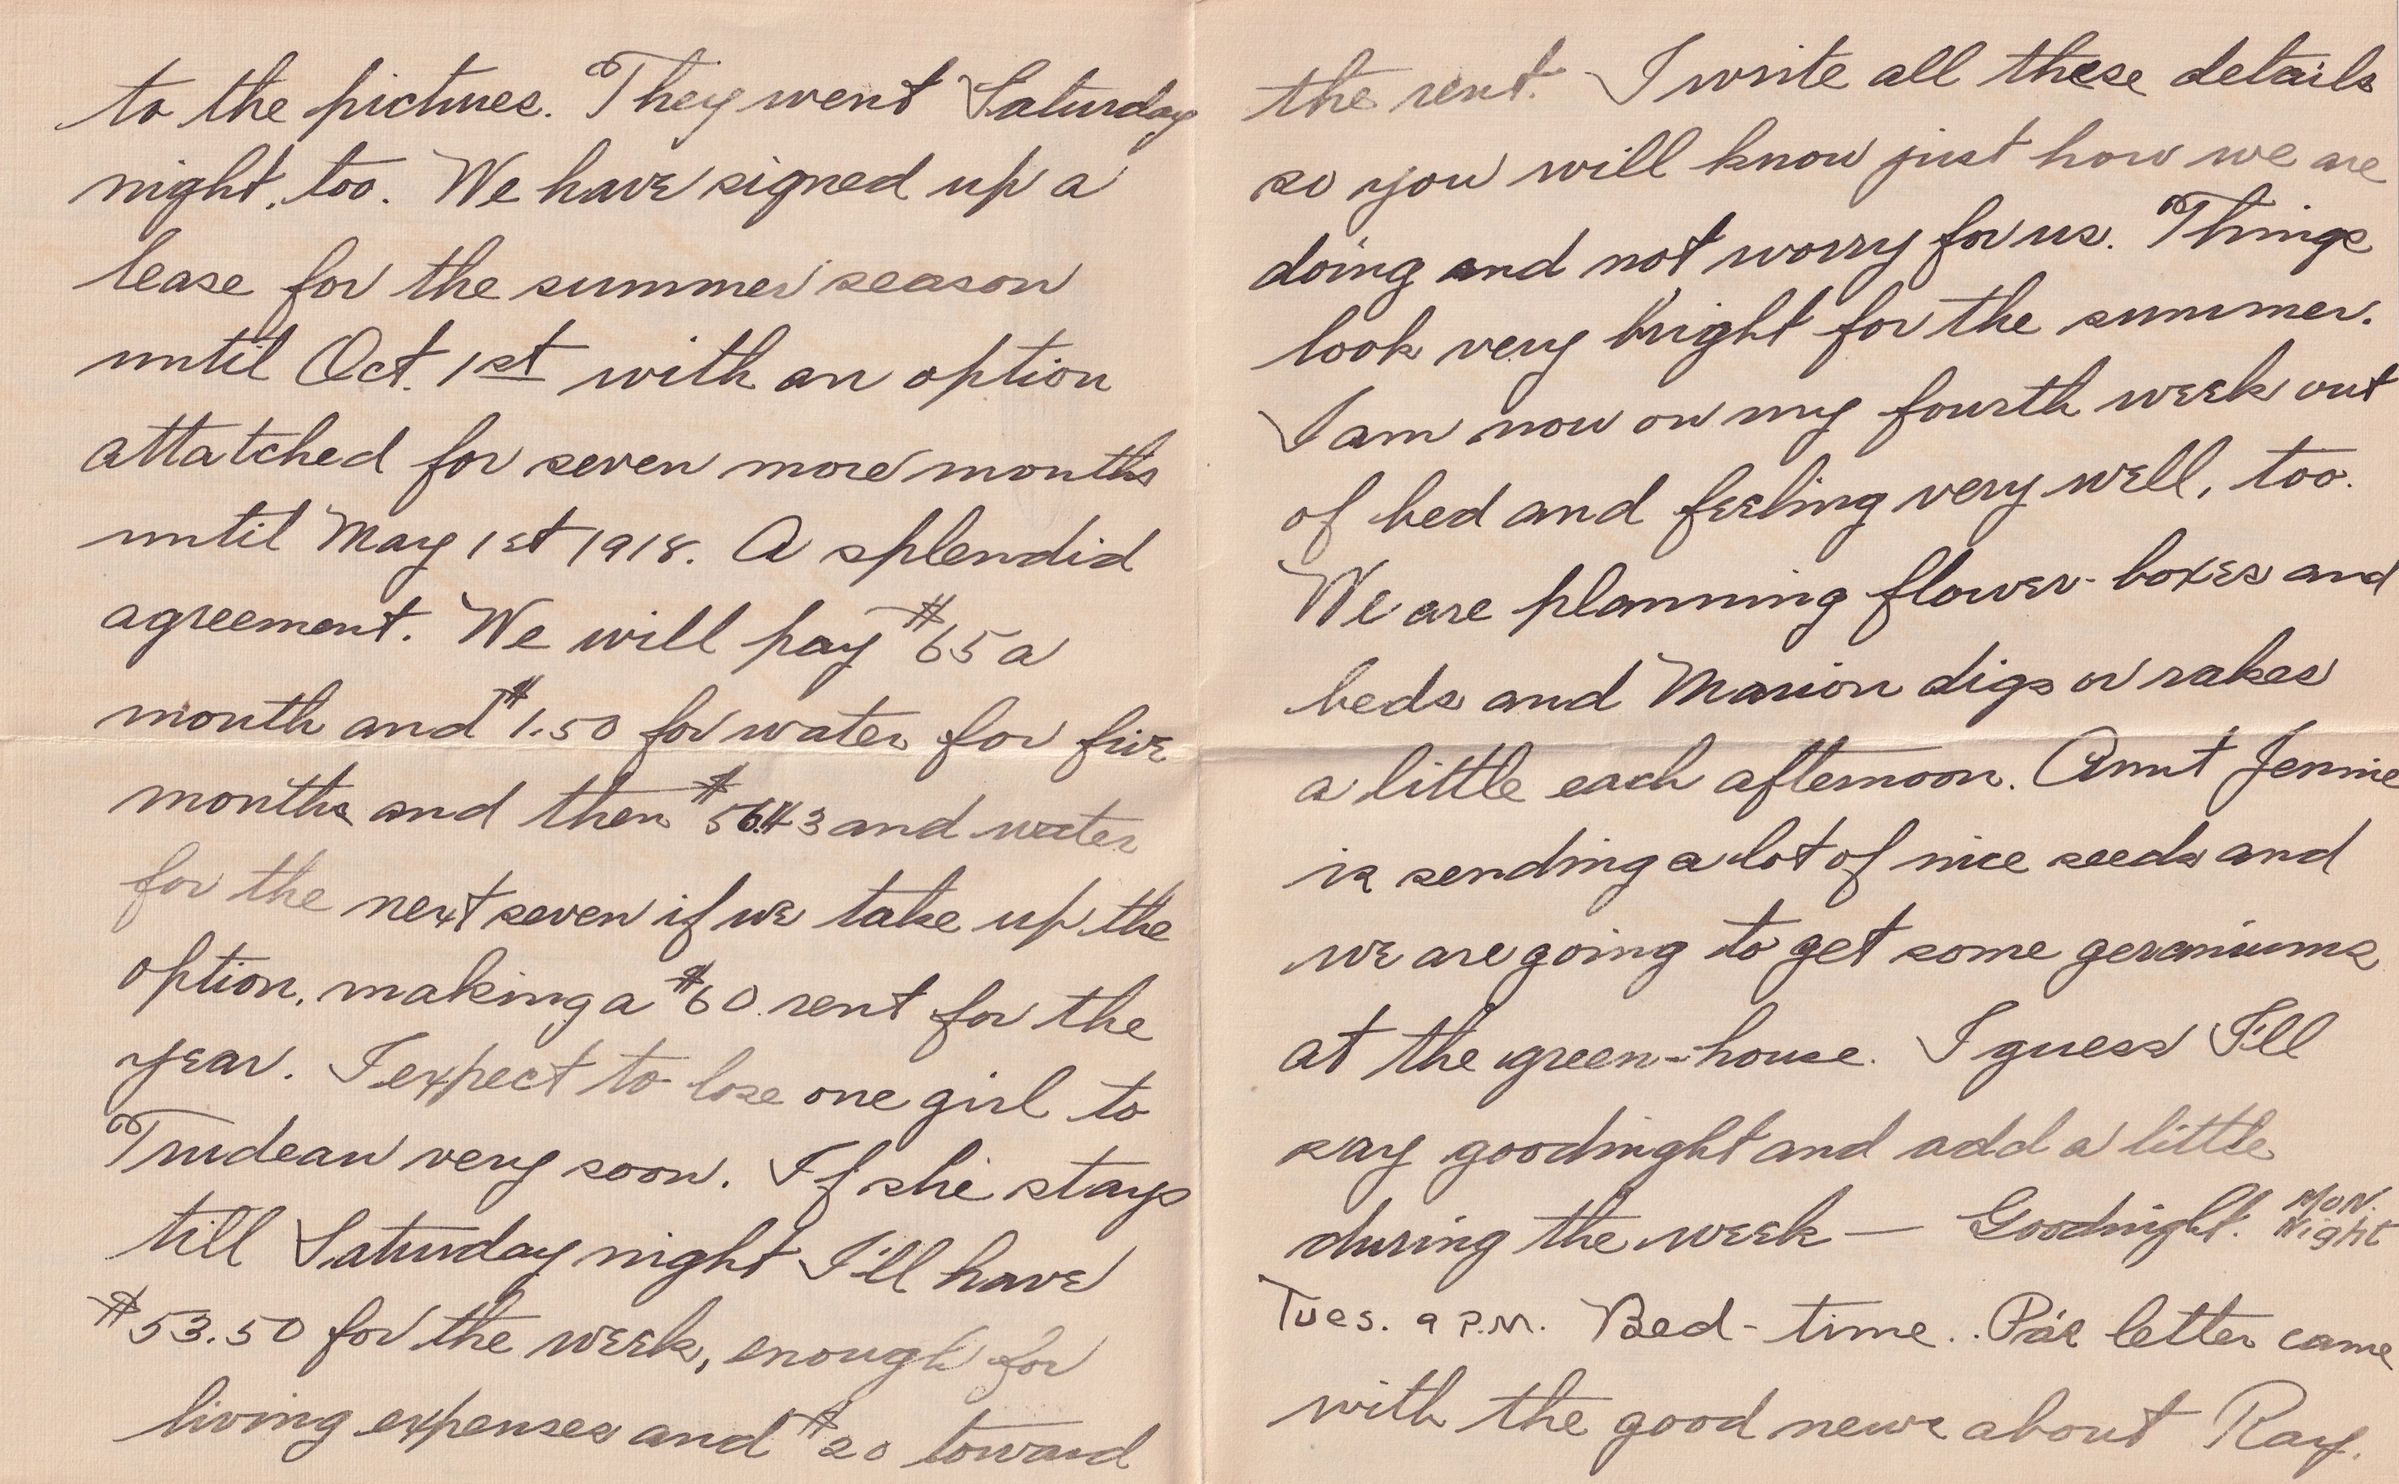 to the pictures. They went Saturday
night, too. We have signed up a
lease for the summer season
until Oct. 1st with an option
attatched for seven more months
until May 1st 1918. A splendid
agreement. We will pay $65 a
month and $1.50 for water for five
months and then $56.43 and water
for the next seven if we take up the
option, making a $60. rent for the
year. I expect to lose one girl to
Trudeau very soon. If she stays
till Saturday night I'll have
$53.50 for the week, enough for
living expenses and $20 toward
the rent. I write all these details
so you will know just how we are
doing and not worry for us. Things
look very bright for the summer.
I am now on my fourth week out
of bed and feeling very well, too.
We are planning flower-boxes and
beds and Marion digs or rakes
a little each afternoon. Aunt Jennie
is sending a lot of nice seeds and
we are going to get some geraniums
at the green-house. I guess I'll
say goodnight and add a little
during the week — Goodnight. Mon. Night
Tues. 9 P.M. Bed-time. Pa's letter came
with the good news about Ray.